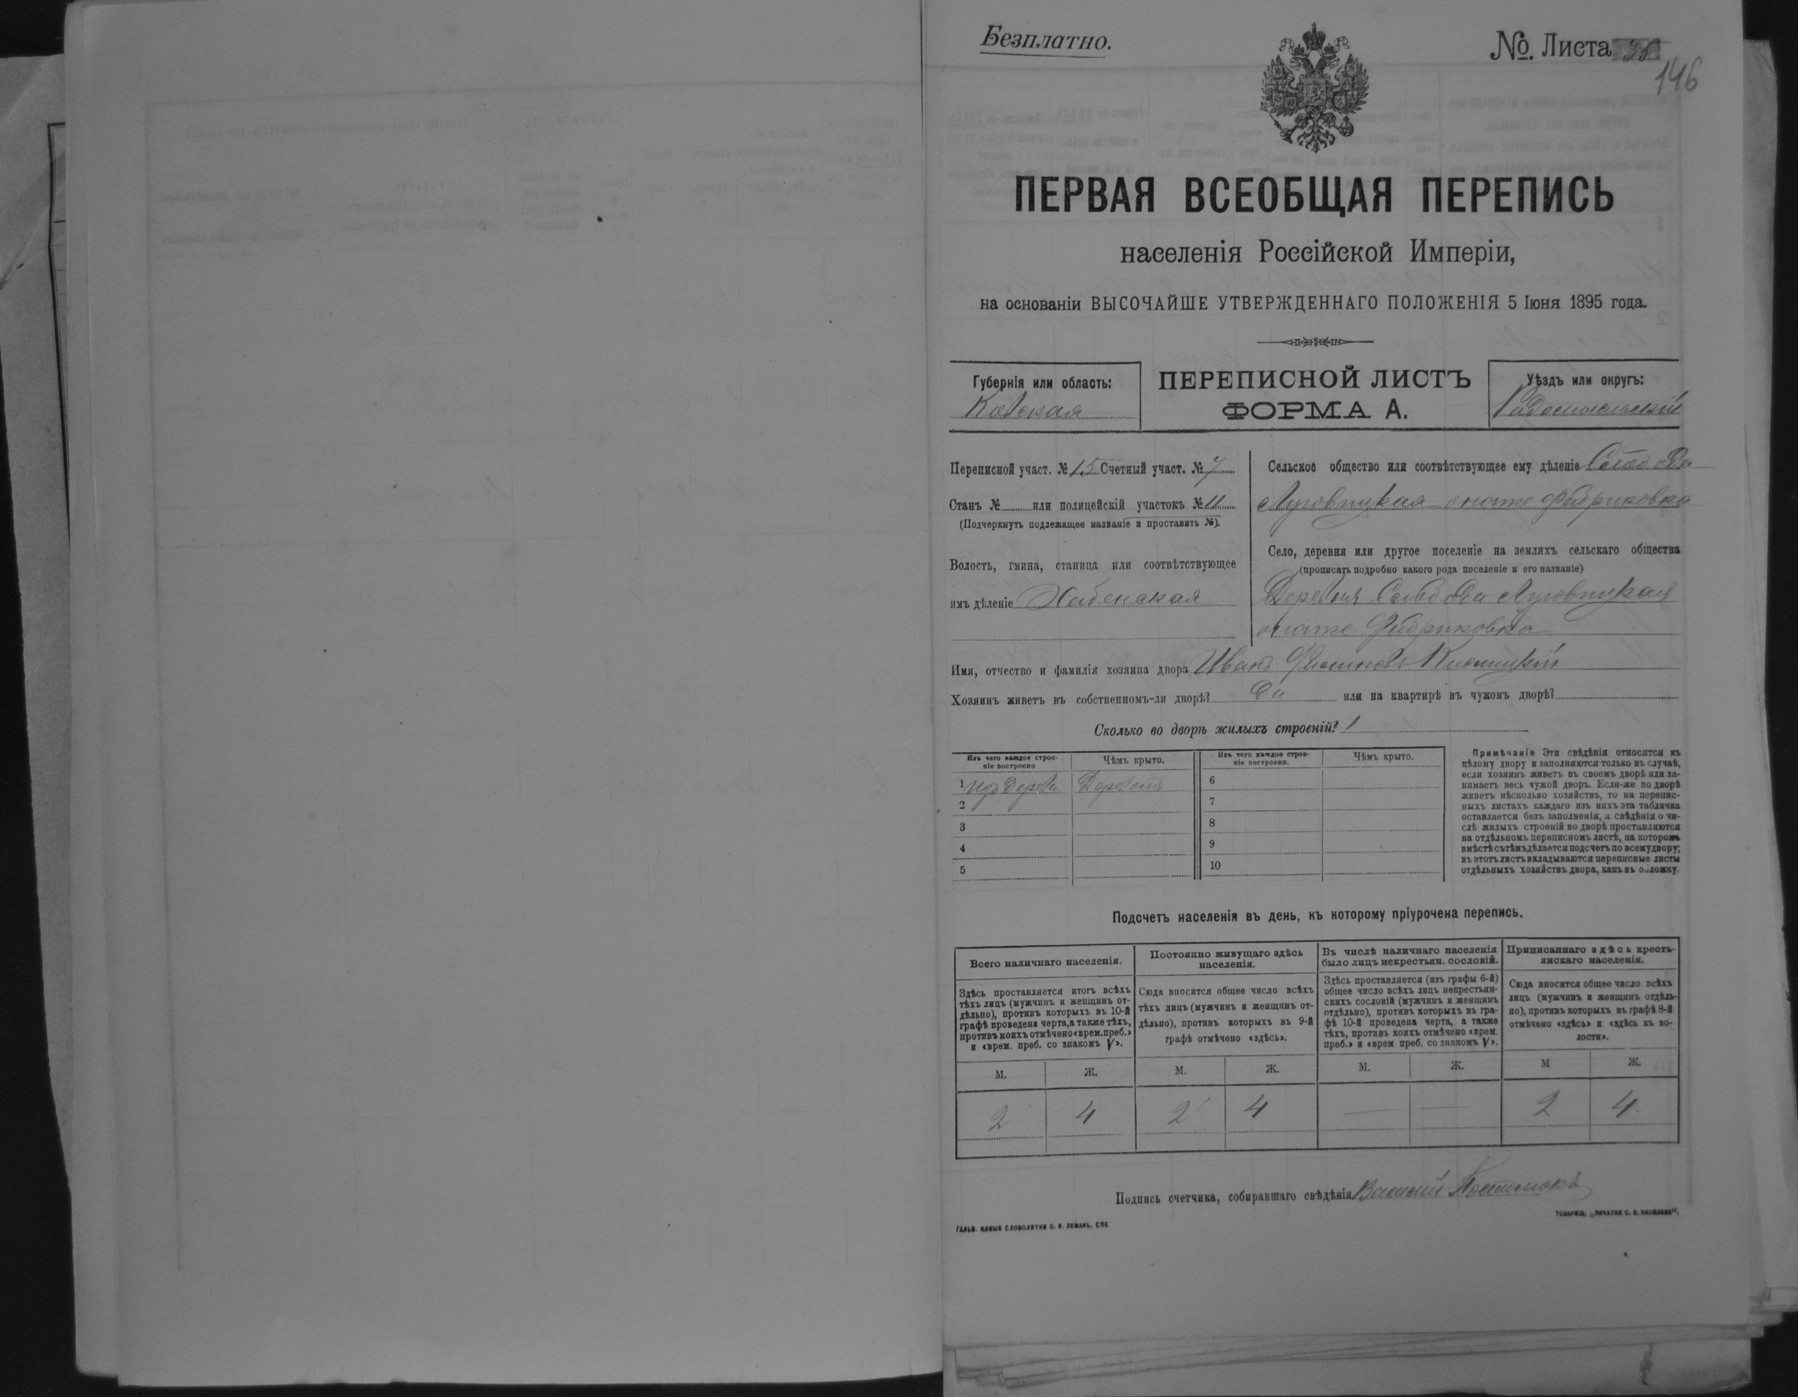 Безплатно.
№. Листа
146
ПЕРВАЯ ВСЕОБЩАЯ ПЕРЕПИСЬ
населенія Россійской Имперіи,
на основаніи ВЫСОЧАЙШЕ УТВЕРЖДЕННАГО ПОЛОЖЕНІЯ 5 Іюня 1895 года.
Губернія или область:
Кіевская
ПЕРЕПИСНОЙ ЛИСТЪ
ФОРМА А.
Уѣздъ или округъ:
Радомысльскій
Переписной участ. № 15 Счетный участ. № 7
Станъ № или полицейскій участокъ № 11
(Подчеркнуть подлежащее названіе и проставить №).
Волость, гмина, станица или соотвѣтствующее
имъ дѣленіе Хабенская
Сельское общество или соотвѣтствующее ему дѣленіе Слобода
Фабриковка
Село, деревня или другое поселеніе на земляхъ сельскаго общества
(прописать подробно какого рода поселеніе и его названіе)
Деревня Слобода
Фабриковка
Имя, отчество и фамилія хозяина двора Иванъ
Хозяинъ живетъ въ собственномъ-ли дворѣ? Да или на квартирѣ въ чужомъ дворѣ?
Сколько во дворѣ жилыхъ строеній? 1
Изъ чего каждое строе-
ніе построено
Чѣмъ крыто.
Изъ чего каждое строе-
ніе построено.
Чѣмъ крыто.
1 изъ дерева Деревомъ
2
3
4
5
6
7
8
9
10
Примѣчаніе Эти свѣдѣнія относятся къ
цѣлому двору и заполняются только въ случаѣ,
если хозяинъ живетъ въ своемъ дворѣ или за-
нимаетъ весь чужой дворъ. Если-же во дворѣ
живетъ нѣсколько хозяйствъ, то на перепис-
ныхъ листахъ каждаго изъ нихъ эта табличка
оставляется безъ заполненія, а свѣдѣнія о чи-
слѣ жилыхъ строеній во дворѣ проставляются
на отдѣльномъ переписномъ листѣ, на которомъ
вмѣстѣ съ тѣмъ дѣлается подсчетъ по всему двору;
въ этотъ листъ вкладываются переписные листы
отдѣльныхъ хозяйствъ двора, какъ въ обложку.
Подсчетъ населенія въ день, къ которому пріурочена перепись.
Всего наличнаго населенія.
Здѣсь проставляется итогъ всѣхъ
тѣхъ лицъ (мужчинъ и женщинъ от-
дѣльно), противъ которыхъ въ 10-й
графѣ проведена черта, а также тѣхъ,
противъ коихъ отмѣчено «врем. преб.»
и «врем. преб. со знакомъ V».
Постоянно живущаго здѣсь
населенія.
Сюда вносится общее число всѣхъ
тѣхъ лицъ (мужчинъ и женщинъ от-
дѣльно), противъ которыхъ въ 9-й
графѣ отмѣчено «здѣсь».
Въ числѣ наличнаго населенія
было лицъ некрестьян. сословій.
Здѣсь проставляется (изъ графы 6-й)
общее число всѣхъ лицъ некрестьян-
скихъ сословій (мужчинъ и женщинъ
отдѣльно), противъ которыхъ въ гра-
фѣ 10-й проведена черта, а также
тѣхъ, противъ коихъ отмѣчено «врем.
преб.» и «врем. преб. со знакомъ V».
Приписаннаго здѣсь кресть-
янскаго населенія.
Сюда вносится общее число всѣхъ
лицъ (мужчинъ и женщинъ отдѣль-
но), противъ которыхъ въ графѣ 8-й
отмѣчено «здѣсь» и «здѣсь въ во-
лости».
М. Ж. М. Ж. М. Ж. М Ж.
2 4 2 4 — — 2 4
Подпись счетчика, собиравшаго свѣдѣнія Василій
ГЕЛЬВ. КЛИШЕ СЛОВОЛИТНИ О. И. ЛЕМАНЪ, СПБ
ТОВАРИЩ. „ПЕЧАТНЯ С. П. ЯКОВЛЕВА“.